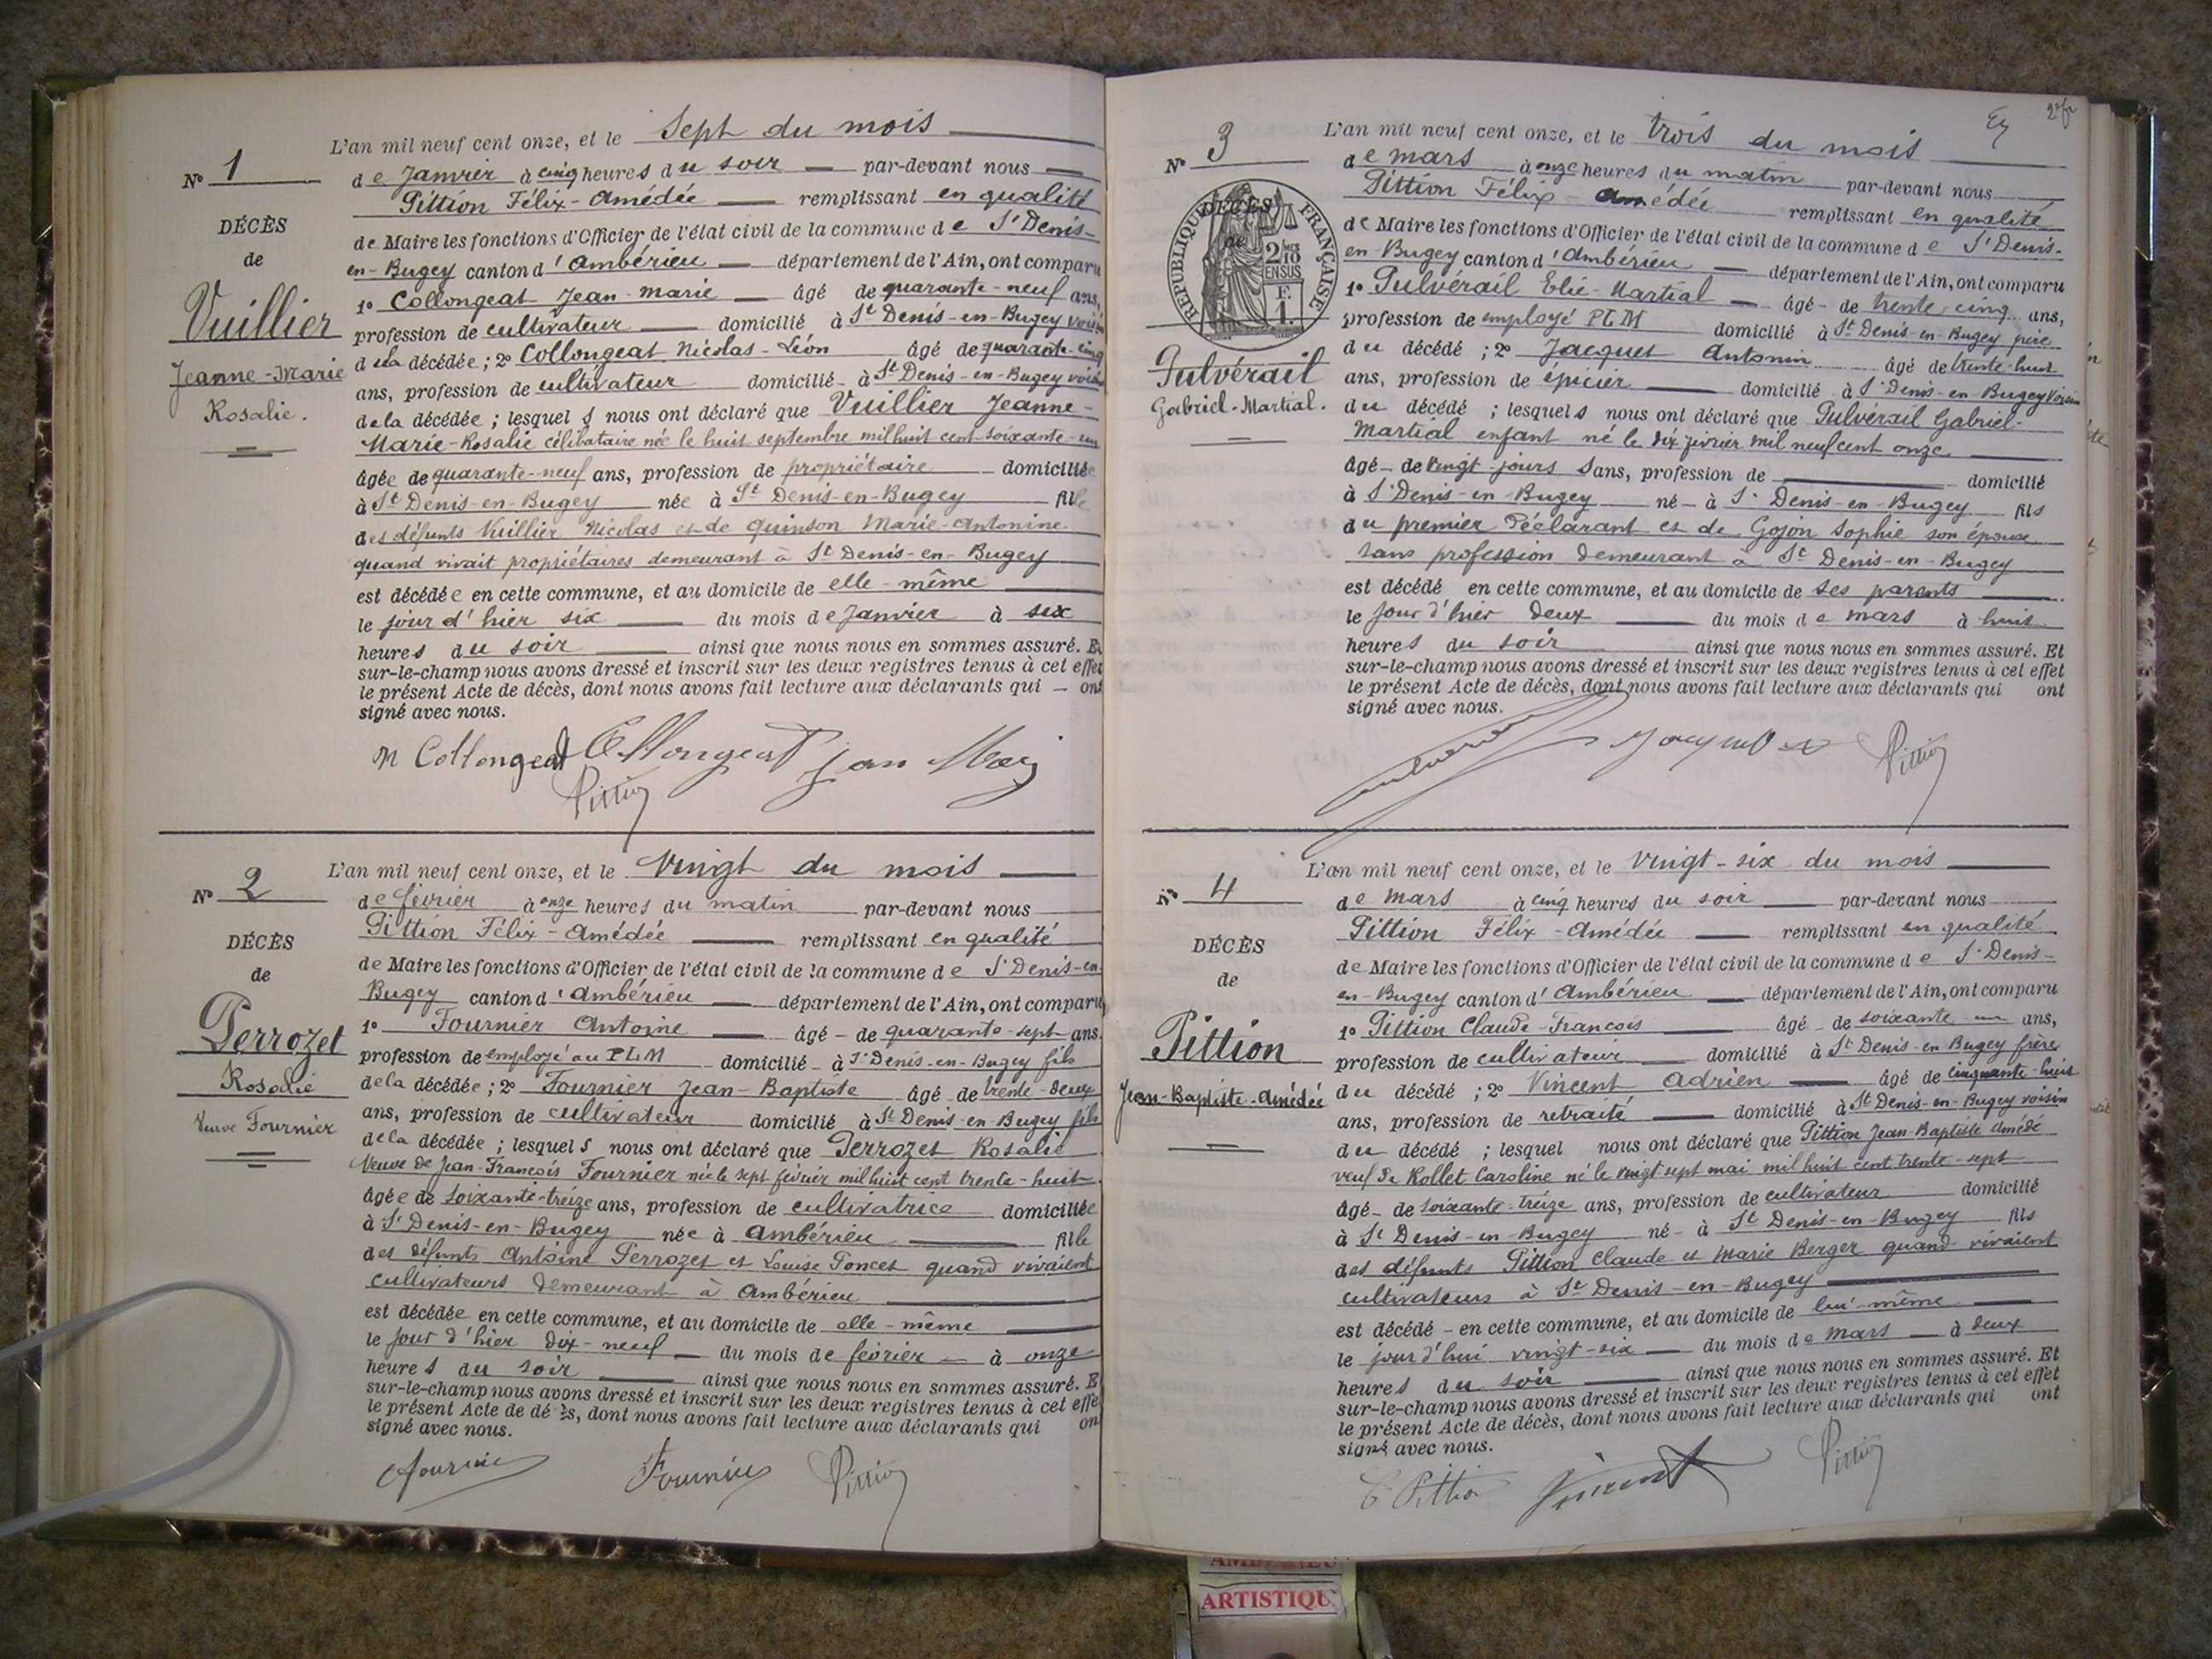 L'an mil neuf cent onze, et le Sept du mois
N° 1
de Janvier à cinq heures du soir par-devant nous
Pittion Félix-Amédée remplissant en qualité
DÉCÈS
de Maire les fonctions d'Officier de l'état civil de la commune de St Denis-
de
en-Bugey canton d'Ambérieu département de l'Ain, ont comparu
1° Collongeat Jean-Marie âgé de quarante-neuf ans,
Vuillier
profession de cultivateur domicilié à St Denis-en-Bugey voisin
Jeanne-Marie
de la décédée ; 2° Collongeat Nicolas-Léon âgé de quarante-cinq
ans, profession de cultivateur domicilié à St Denis-en-Bugey voisin
Rosalie.
de la décédée ; lesquels nous ont déclaré que Vuillier Jeanne-
Marie-Rosalie célibataire née le huit septembre mil huit cent soixante-un
âgée de quarante-neuf ans, profession de propriétaire domiciliée
à St Denis-en-Bugey née à St Denis-en-Bugey fille
des défunts Vuillier Nicolas et de Quinson Marie-Antonine
quand vivait propriétaires demeurant à St Denis-en-Bugey
est décédée en cette commune, et au domicile de elle-même
le jour d'hier six du mois de Janvier à six
heures du soir ainsi que nous nous en sommes assuré. Et
sur-le-champ nous avons dressé et inscrit sur les deux registres tenus à cet effet
le présent Acte de décès, dont nous avons fait lecture aux déclarants qui ont
signé avec nous.
N Collongeat Collongeat Jean Marie
Pittion
L'an mil neuf cent onze, et le Vingt du mois
N° 2
de février à onze heures du matin par-devant nous
Pittion Félix-Amédée remplissant en qualité
DÉCÈS
de Maire les fonctions d'Officier de l'état civil de la commune de St Denis-en-
de
Bugey canton d'Ambérieu département de l'Ain, ont comparu
1° Fournier Antoine âgé de quarante-sept ans.
Perrozet
profession de employé au PLM domicilié à St Denis-en-Bugey fils
Rosalie
de la décédée ; 2° Fournier Jean-Baptiste âgé de trente-deux
ans, profession de cultivateur domicilié à St Denis-en-Bugey fils
Veuve Fournier
de la décédée ; lesquels nous ont déclaré que Perrozet Rosalie
Veuve de Jean-François Fournier née le sept février mil huit cent trente-huit
âgée de soixante-treize ans, profession de cultivatrice domiciliée
à St Denis-en-Bugey née à Ambérieu fille
des défunts Antoine Perrozet et Louise Poncet quand vivaient
cultivateurs demeurant à Ambérieu
est décédée en cette commune, et au domicile de elle-même
le jour d'hier dix-neuf du mois de février à onze
heures du soir ainsi que nous nous en sommes assuré. Et
sur-le-champ nous avons dressé et inscrit sur les deux registres tenus à cet effet
le présent Acte de décès, dont nous avons fait lecture aux déclarants qui ont
signé avec nous.
Fournier Fournier Pittion
L'an mil neuf cent onze, et le trois du mois
N° 3
de mars à onze heures du matin par-devant nous
Pittion Félix Amédée remplissant en qualité
RÉPUBLIQUE FRANÇAISE
DÉCÈS
de
2/10 EN SUS
F. 1.
de Maire les fonctions d'Officier de l'état civil de la commune de St Denis-
en-Bugey canton d'Ambérieu département de l'Ain, ont comparu
1° Pulvérail Elie-Martial âgé de trente-cinq ans,
profession de employé PLM domicilié à St Denis-en-Bugey père
Pulvérail
du décédé ; 2° Jacquet Antonin âgé de trente-huit
ans, profession de épicier domicilié à St Denis-en-Bugey voisin
Gabriel-Martial.
du décédé ; lesquels nous ont déclaré que Pulvérail Gabriel-
Martial enfant né le dix février mil neuf cent onze
âgé de vingt jours ans, profession de domicilié
à St Denis-en-Bugey né à St Denis-en-Bugey fils
du premier déclarant et de Gojon Sophie son épouse
sans profession demeurant à St Denis-en-Bugey
est décédé en cette commune, et au domicile de ses parents
le jour d'hier deux du mois de mars à huit
heures du soir ainsi que nous nous en sommes assuré. Et
sur-le-champ nous avons dressé et inscrit sur les deux registres tenus à cet effet
le présent Acte de décès, dont nous avons fait lecture aux déclarants qui ont
signé avec nous.
Jacquet Pittion
L'an mil neuf cent onze, et le vingt-six du mois
N° 4
de mars à cinq heures du soir par-devant nous
Pittion Félix-Amédée remplissant en qualité
DÉCÈS
de Maire les fonctions d'Officier de l'état civil de la commune de St Denis-
de
en-Bugey canton d'Ambérieu département de l'Ain, ont comparu
1° Pittion Claude-François âgé de soixante-un ans,
Pittion
profession de cultivateur domicilié à St Denis-en-Bugey frère
Jean-Baptiste-Amédée
du décédé ; 2° Vincent Adrien âgé de cinquante-huit
ans, profession de retraité domicilié à St Denis-en-Bugey voisin
du décédé ; lesquel nous ont déclaré que Pittion Jean-Baptiste Amédé
veuf de Rollet Caroline né le vingt-sept mai mil huit cent trente-sept
âgé de soixante-treize ans, profession de cultivateur domicilié
à St Denis-en-Bugey né à St Denis-en-Bugey fils
des défunts Pittion Claude et Marie Berger quand vivaient
cultivateurs à St Denis-en-Bugey
est décédé en cette commune, et au domicile de lui-même
le jour d'hui vingt-six du mois de mars à deux
heures du soir ainsi que nous nous en sommes assuré. Et
sur-le-champ nous avons dressé et inscrit sur les deux registres tenus à cet effet
le présent Acte de décès, dont nous avons fait lecture aux déclarants qui ont
signé avec nous.
C Pittion Vincent Pittion
ARTISTIQU